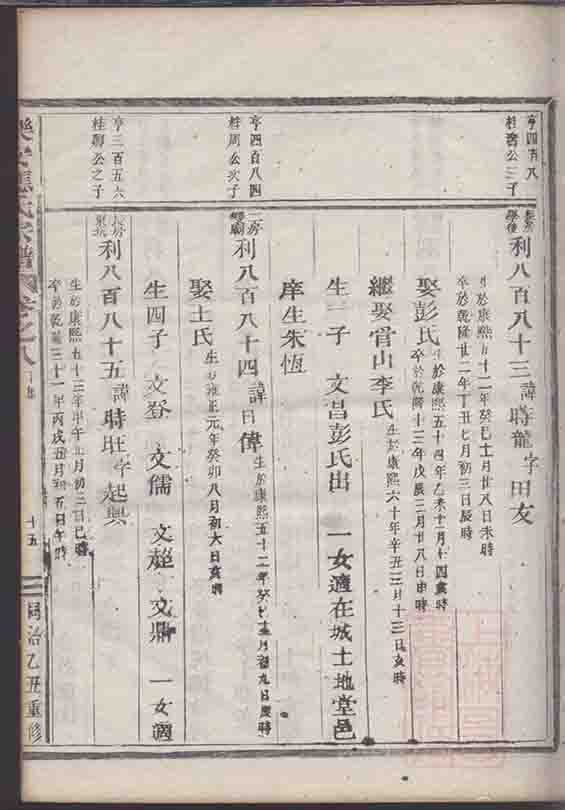 亨四百八
桂公三子
長房
學後
利八百八十三諱時龍字田友
生於康熙五十二年癸巳十一月廿八日未時
卒於乾隆廿二年丁丑七月初三日辰時
娶彭氏
生於康熙五十四年乙未十二月十四寅時
卒於乾隆十三年戊辰三月廿八日申時
繼娶官山李氏
生於康熙六十年辛丑三月十三日亥時
生一子 文昌彭氏出 一女適在城土地堂邑
庠生朱恆
亨四百八四
桂周公次子
二房
利八百八十四諱日偉
生於康熙五十二年癸巳月初九日辰時
娶王氏
生於雍正元年癸卯八月初六日亥時
生四子 文登 文儒 文超 文鼎 一女適
亨三百五六
桂公之子
長房
利八百八十五諱時旺字起興
生於康熙五十三年甲午月初三日巳時
卒於乾隆三十一年丙戌五月初五日午時
氏宗譜 卷之八
十五
同治乙丑重修